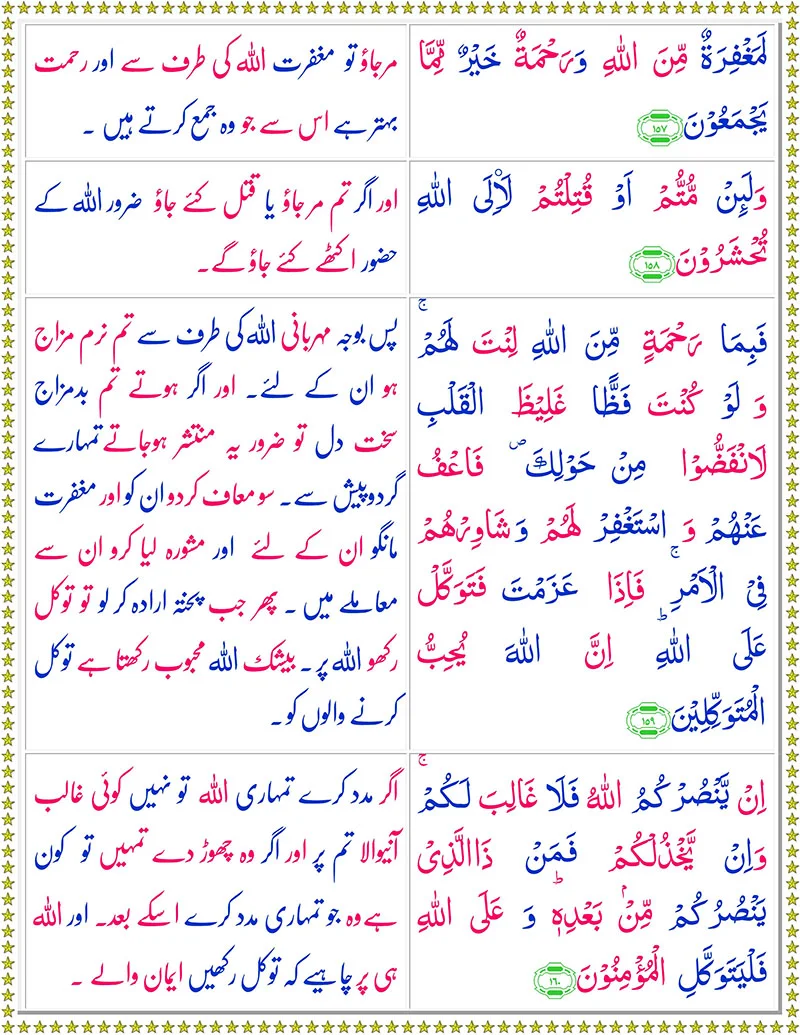 لَمَغْفِرَةٌ مِّنَ اللهِ وَرَحْمَةٌ خَيْرٌ مِّمَّا
يَجْمَعُوْنَ ﴿١٥٧﴾
مرجاؤ تو مغفرت الله کی طرف سے اور رحمت
بہتر ہے اس سے جو وہ جمع کرتے ہیں ۔
وَلَئِنْ مُّتُّمْ اَوْ قُتِلْتُمْ لَاۡاِلَى اللهِ
تُحْشَرُوْنَ ﴿١٥٨﴾
اور اگر تم مرجاؤ یا قتل کئے جاؤ ضرور الله کے
حضور اکٹھے کئے جاؤ گے۔
فَبِمَا رَحْمَةٍ مِّنَ اللهِ لِنْتَ لَهُمْ ۚ
وَ لَوْ كُنْتَ فَظًّا غَلِيْظَ الْقَلْبِ
لَانْفَضُّوْا مِنْ حَوْلِكَ ۖ فَاعْفُ
عَنْهُمْ وَ اسْتَغْفِرْ لَهُمْ وَ شَاوِرْهُمْ
فِى الْاَمْرِ ۚ فَاِذَا عَزَمْتَ فَتَوَكَّلْ
عَلَى اللهِ ؕ اِنَّ اللهَ يُحِبُّ
الْمُتَوَكِّلِيْنَ ﴿١٥٩﴾
پس بوجہ مہربانی الله کی طرف سے تم نرم مزاج
ہو ان کے لئے۔ اور اگر ہوتے تم بدمزاج
سخت دل تو ضرور یہ منتشر ہوجاتے تمہارے
گردوپیش سے۔ سو معاف کردو ان کو اور مغفرت
مانگو ان کے لئے اور مشورہ لیا کرو ان سے
معاملے میں ۔ پھر جب پختہ ارادہ کر لو تو توکل
رکھو الله پر۔ بیشک الله محبوب رکھتا ہے توکل
کرنے والوں کو ۔
اِنْ يَّنْصُرْكُمُ اللهُ فَلَا غَالِبَ لَكُمْ ۚ
وَاِنْ يَّخْذُلْكُمْ فَمَنْ ذَا الَّذِىْ
يَنْصُرُكُمْ مِّنْۢ بَعْدِهٖ ؕ وَ عَلَى اللهِ
فَلْيَتَوَكَّلِ الْمُؤْمِنُوْنَ ﴿١٦٠﴾
اگر مدد کرے تمہاری الله تو نہیں کوئی غالب
آنیوالا تم پر اور اگر وہ چھوڑ دے تمہیں تو کون
ہے وہ جو تمہاری مدد کرے اسکے بعد۔ اور الله
ہی پر چاہیے کہ توکل رکھیں ایمان والے ۔